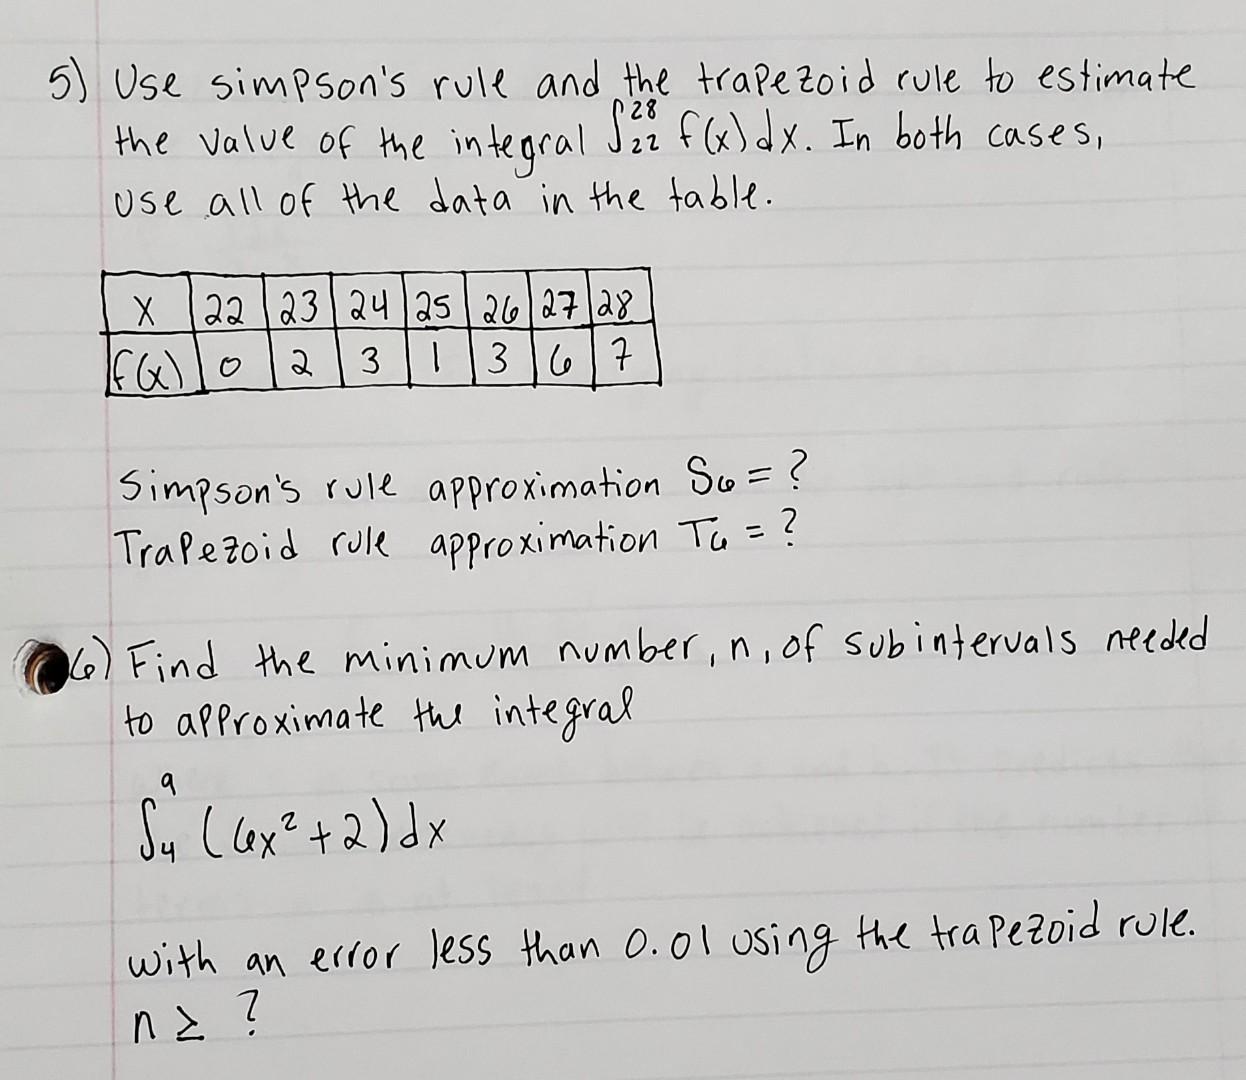 5) Use simpson's rule and the trapezoid rule to estimate
the value of the integral ∫₂₂²⁸ f(x)dx. In both cases,
use all of the data in the table.
x 22 23 24 25 26 27 28
f(x) 0 2 3 1 3 6 7
Simpson's rule approximation S₆ = ?
Trapezoid rule approximation T₆ = ?
6) Find the minimum number, n, of subintervals needed
to approximate the integral
∫₄⁹ (6x² + 2)dx
with an error less than 0.01 using the trapezoid rule.
n ≥ ?